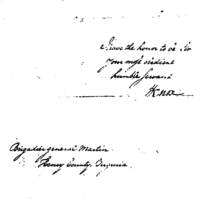 I have the honor to be Sir
your most obedient
humble servant
Brigadier general Martin
Henry County, Virginia.